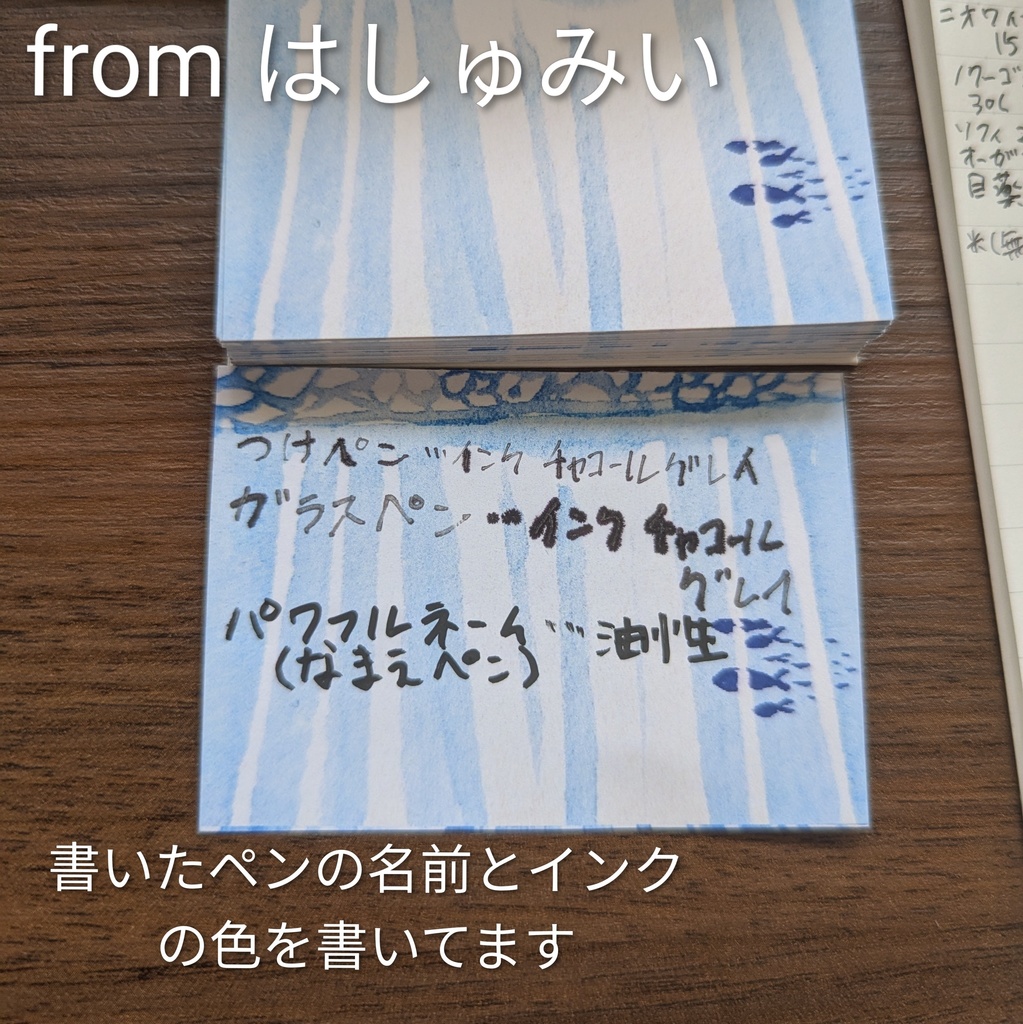 from はしゅみい
つけペン…インク チャコールグレイ
ガラスペン…インク チャコール
グレイ
パワフルネーム…油性
(なまえペン)
書いたペンの名前とインク
の色を書いてます
ニオワイ
15
パワーゴ
30(
ソフィ
オーガ
目薬
米(無